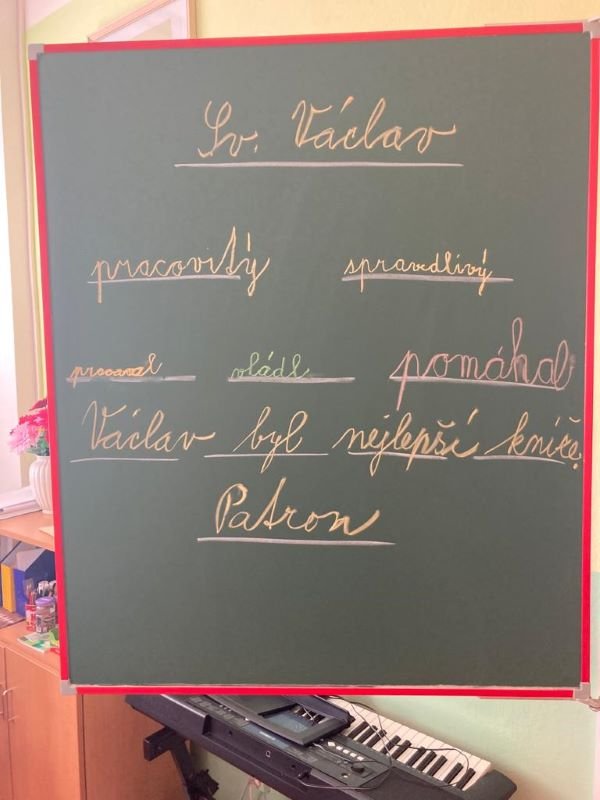 Sv. Václav
pracovitý spravedlivý
pracoval vládl pomáhal
Václav byl nejlepší kníže.
Patron